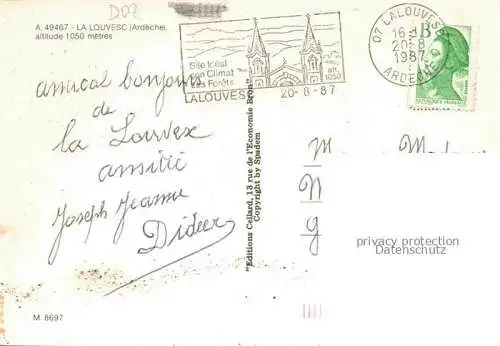 D07
A. 49467 - LA LOUVESC (Ardèche),
altitude 1050 mètres
Site Idéal
Son Climat
Ses Forêts
alt.
1050
LALOUVESC 20-8-87
07 LALOUVESC
16 H
20-8
1987
ARDECHE
B
amical bonjour
de
la Louvesc
amitié
Joseph Jeanne
Didier
"Editions Cellard, 13 rue de l'Economie Bron"
Copyright by Spadem
M
M
N
g
privacy protection
Datenschutz
M 8697